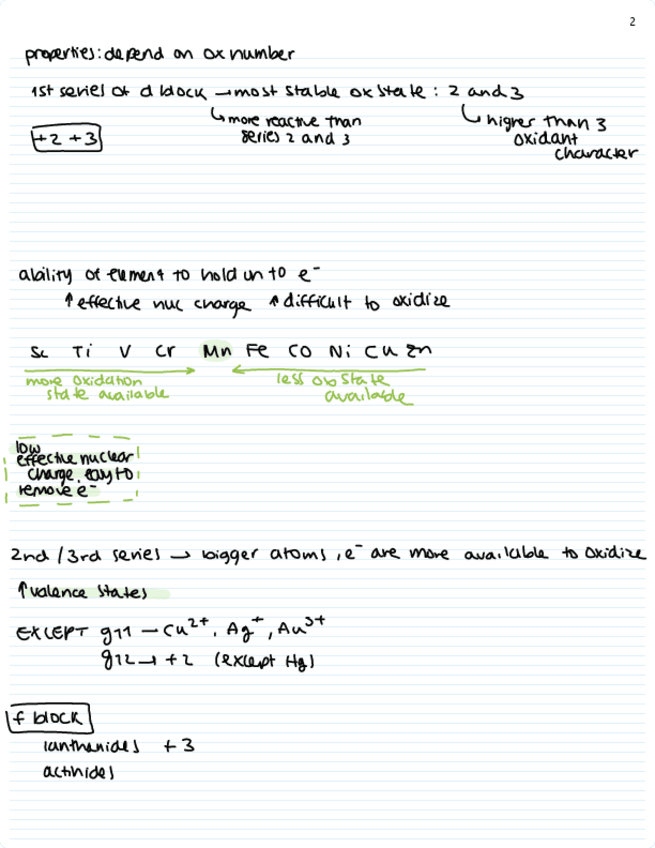 2
properties: depend on ox number
1st series of d block → most stable ox state : 2 and 3
↳ more reactive than
series 2 and 3
↳ higher than 3
oxidant
character
+2 +3
ability of element to hold on to e⁻
↑ effective nuc charge ↑ difficult to oxidize
Sc Ti V Cr Mn Fe Co Ni Cu Zn
more oxidation
state available
less ox state
available
low
effective nuclear
charge, easy to
remove e⁻
2nd / 3rd series → bigger atoms, e⁻ are more available to oxidize
↑ valence states
EXCEPT g11 – Cu²⁺, Ag⁺, Au³⁺
g12 → +2 (except Hg)
f block
lanthanides +3
actinides